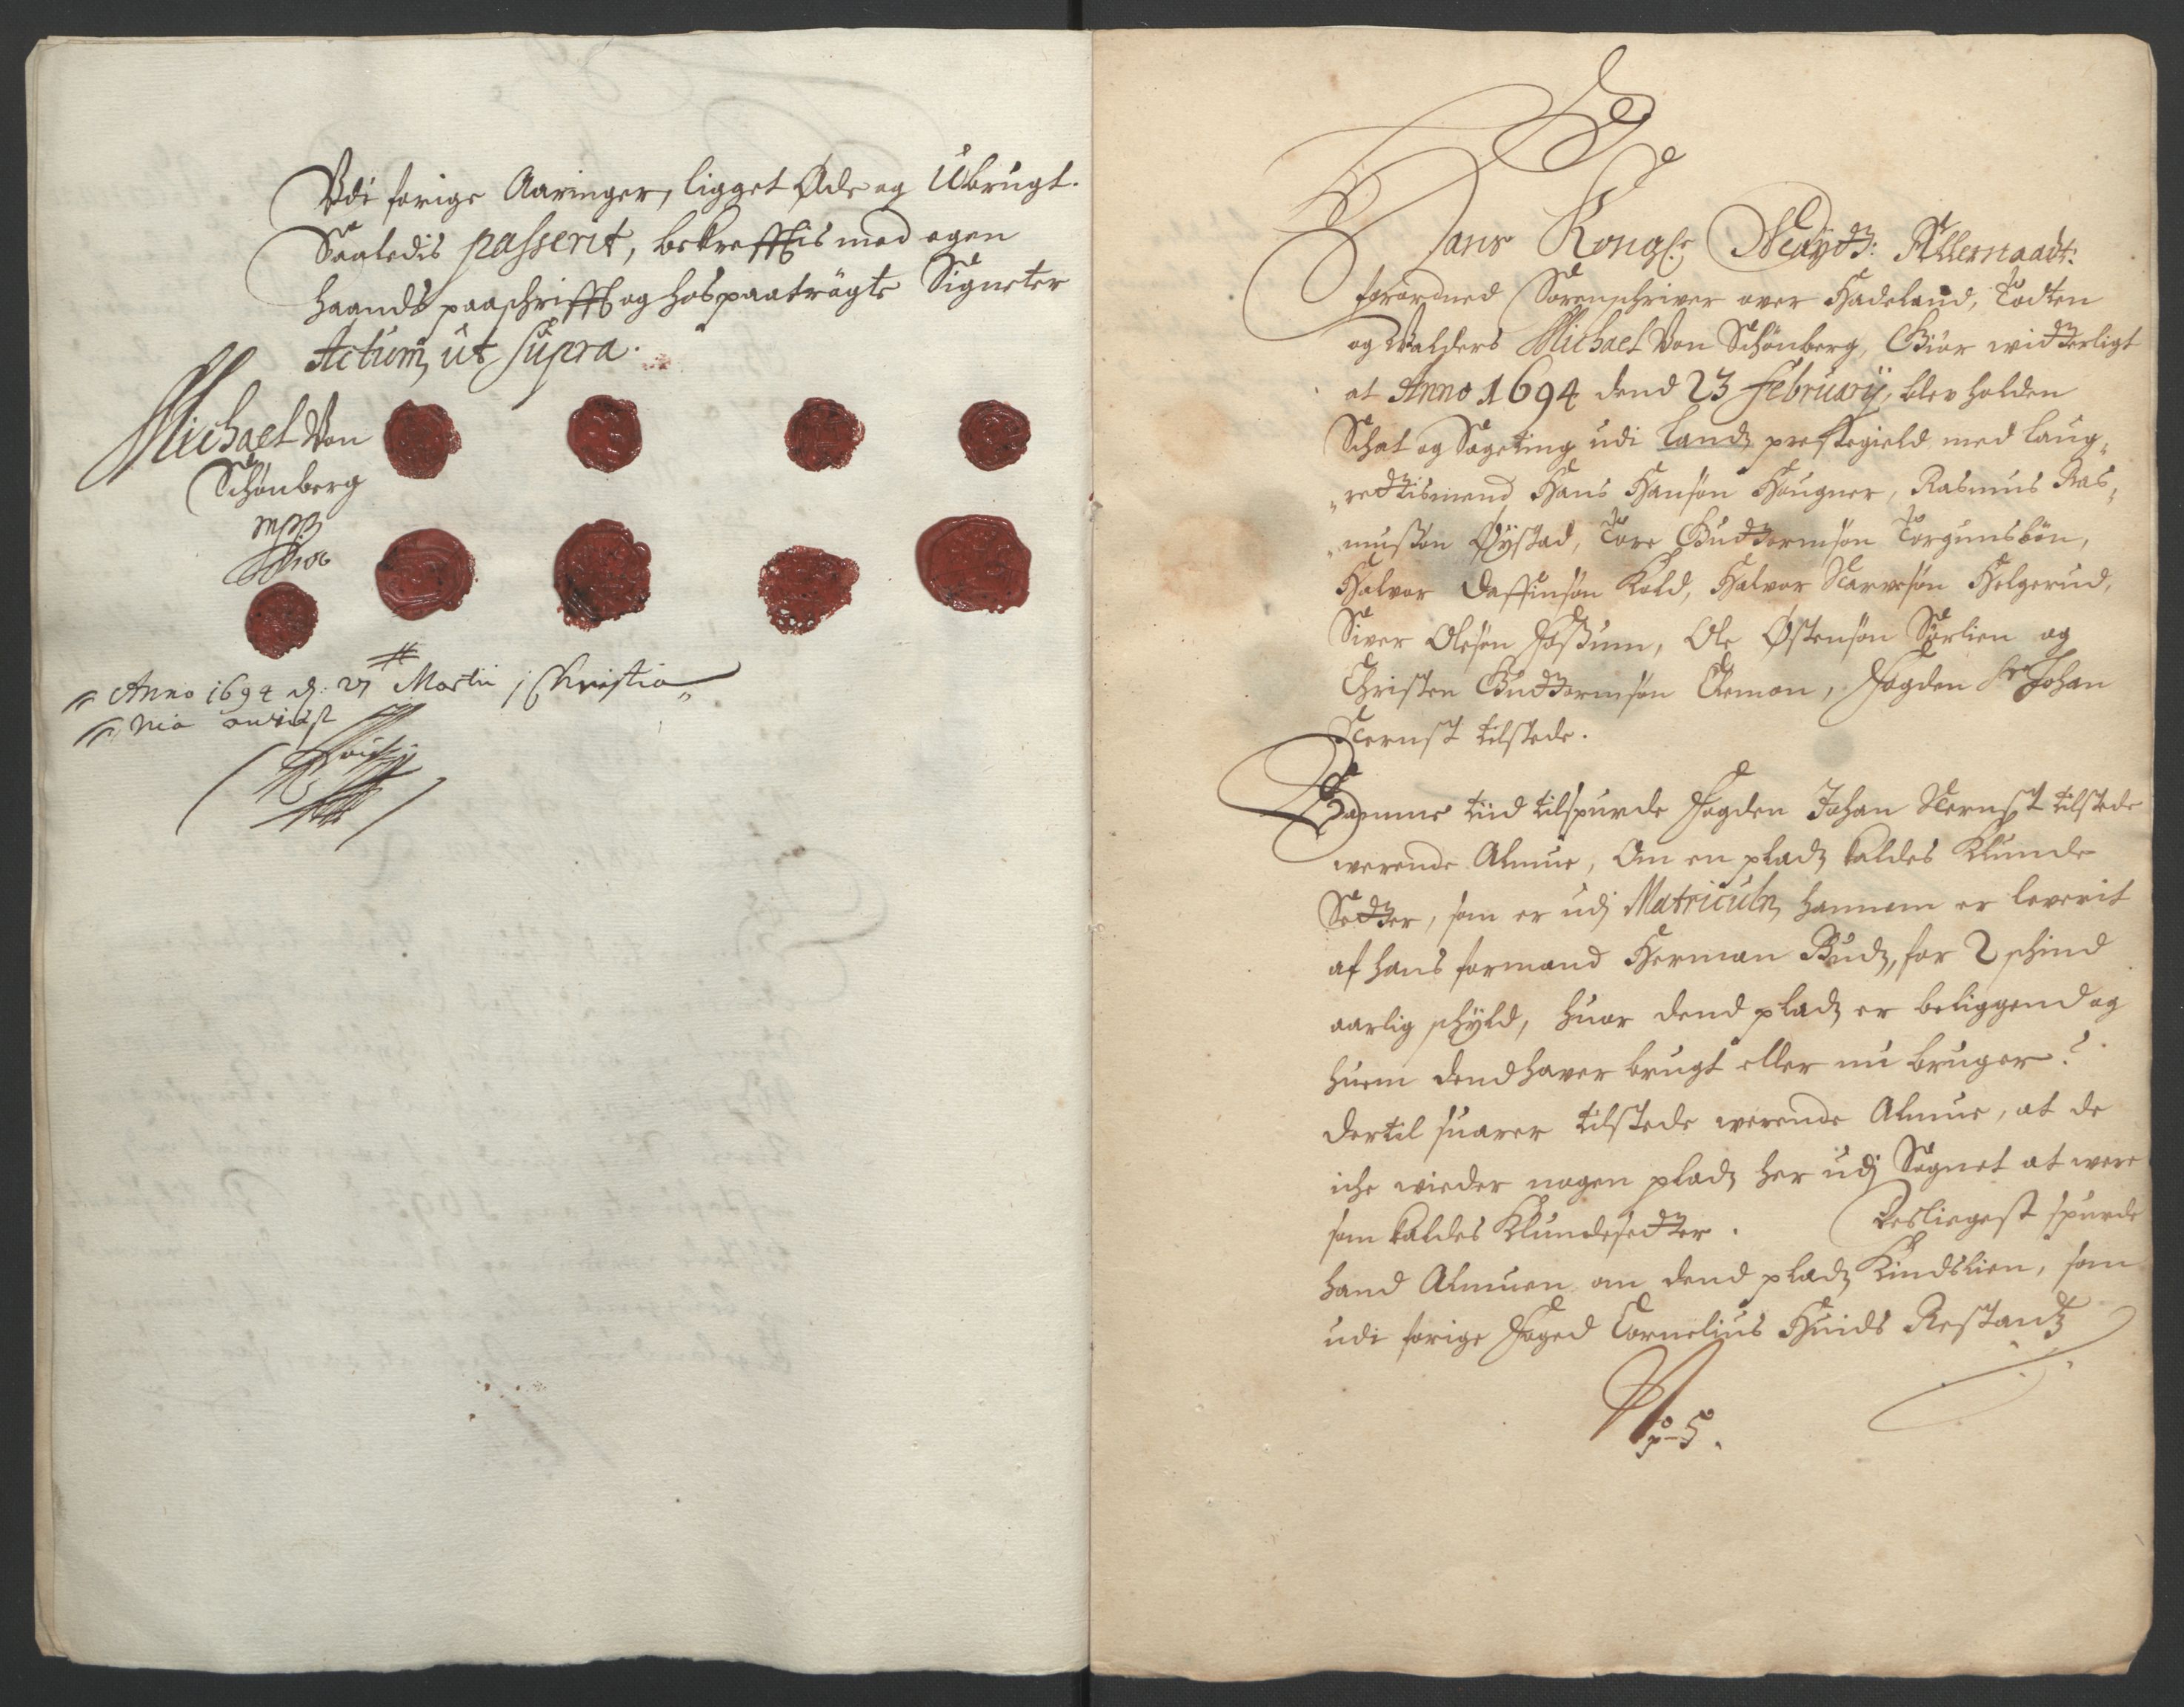 Udi forige Aaringer, ligget Øde og Ubrugt.
Saaledis passerit, bekrefftis med egen
haands paaschrifft og hospaatrøgte Signeter
Actum ut supra.
Michael Von
Schønberg
mpp
Anno 1694 d: 27 Martii j Christia„
„nia anviist
Hans Kongl: Mayts: Allernaadt:
forordned Sorenschriver over Hadeland, Todten
og Walders Michael Von Schönberg, Giør witterligt
at Anno 1694 dend 23 Februarij, blev holden
Schat og Sageting udi Landz prestegield med laug„
„rettismend Hans Hansøn Hougner, Rasmus Ras„
„mussøn Øystad, Tore Guttormsøn Torgunsbøn,
Halvor Daffinsøn Kold, Halvor Narvesøn Helgerud,
Siver Olesøn Fossum, Ole Østensøn Sørlien og
Christen Guttormsøn Elemon, Fogden Sr Johan
Ternst tilstede.
Samme tiid tilspurde Fogden Johan Ternst tilstede
werende Almue, Om en pladz kaldes Klunde
Setter, som er udj Matriculn hannem er leverit
af hans formand Herman Budz, for 2 schind
aarlig schyld, huor dend pladz er beliggend og
huem dend haver brugt eller nu bruger?
dertil suarer tilstede werende Almue, at de
iche wieder nogen pladz her udj Sognet at were
som kaldes Klundesetter. Desliegest spurde
hand Almuen om dend pladz Kindslien, som
udi forige Foged Cornelius Huids Restantz
No 5.